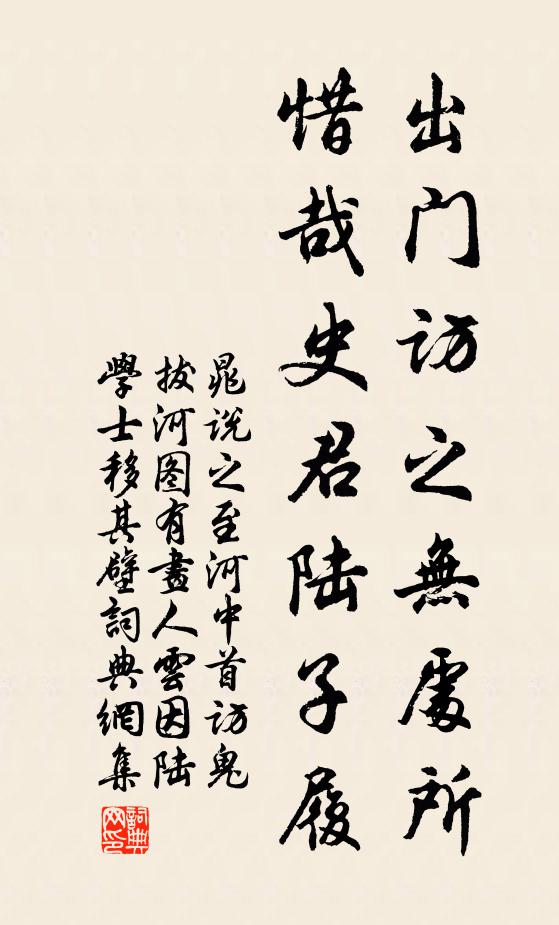 出门访之無處所
惜哉史君陆子履
晁说之至河中首访鬼
拔河图有畫人雲因陆
學士移其壁詞典網集
詞典网印